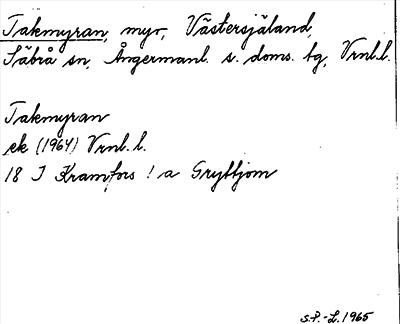 Takmyran, myr, Västersjäland,
Säbrå sn, Ångermanl. s. doms. tg, Vrnl.l.
Takmyran
ek (1964) Vrnl. l.
18 I Kramfors ! a Gryttjom
S.P.-L. 1965